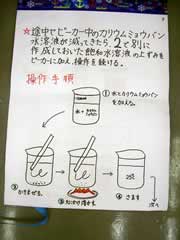 ☆途中でビーカー中のカリウムミョウバン
水溶液が減ってきたら、2で別に
作成しておいた飽和水溶液の上ずみを
ビーカーに加え、操作を続ける。
操作手順
①水とカリウムミョウバン
を加える。
水+
②かきまぜる。
③あたため溶かす。
④さます
25℃
次へ